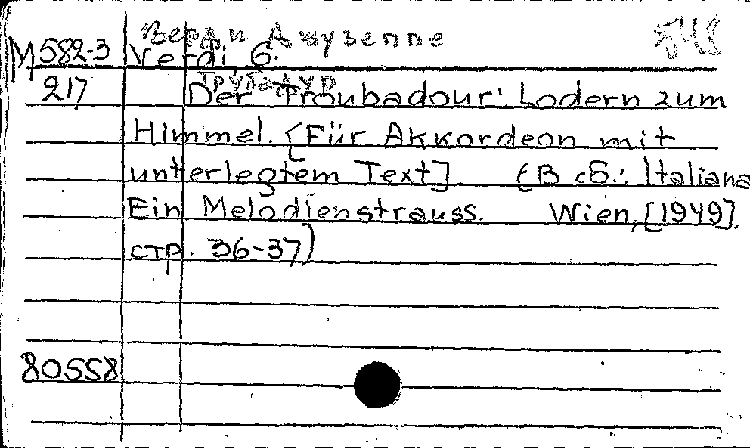 Верди Джузеппе
М 582-3 Verdi G.
Трубадур
217 Der Troubadour: Lodern zum
Himmel. [Für Akkordeon mit
unterlegtem Text] (В сб.: Italiana
Ein Melodienstrauss. Wien, [1949].
стр. 36-37)
80558